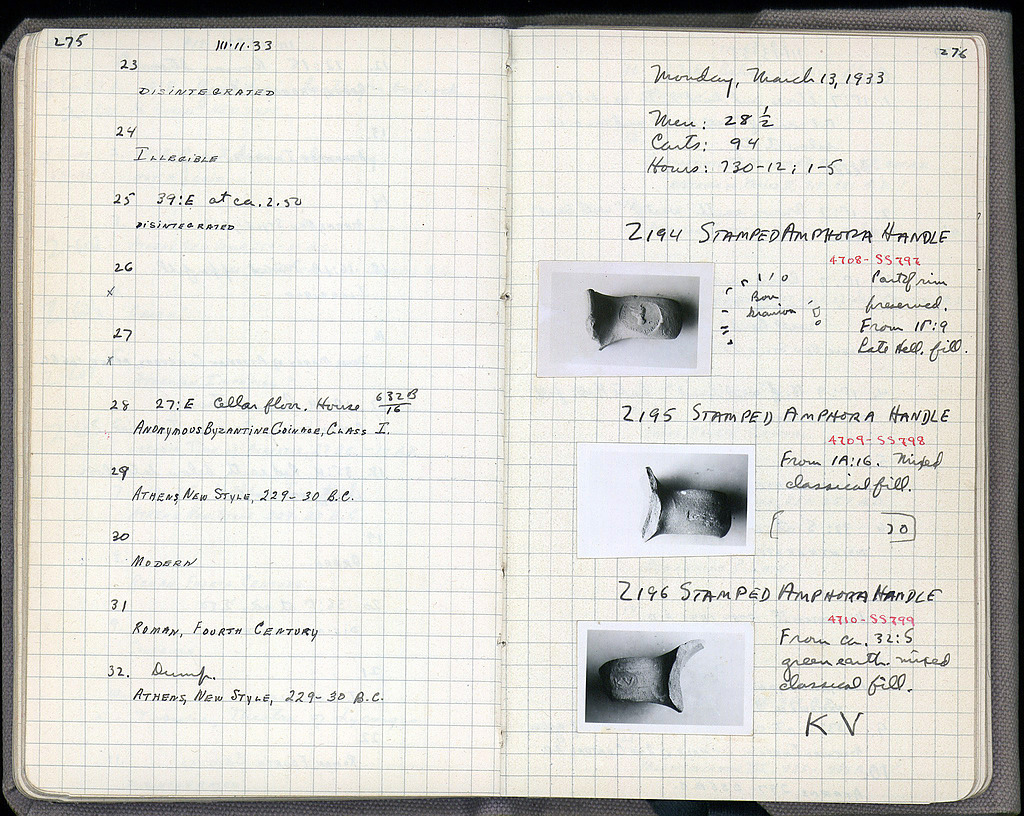 275
III·11·33
23
DISINTEGRATED
24
ILLEGIBLE
25 39:E at ca. 2.50
DISINTEGRATED
26
x
27
x
28 27:E Cellar floor. House 632B/16
ANONYMOUS BYZANTINE COINAGE, CLASS I.
29
ATHENS, NEW STYLE, 229-30 B.C.
30
MODERN
31
ROMAN, FOURTH CENTURY
32. Dump.
ATHENS, NEW STYLE, 229-30 B.C.
276
Monday, March 13, 1933
Men: 28 1/2
Carts: 94
Hours: 730-12; 1-5
Z194 STAMPED AMPHORA HANDLE
4708-SS797
Part of rim
preserved.
Bou
kranion
From 15:9
Late Hell. fill.
Z195 STAMPED AMPHORA HANDLE
4709-SS798
From 1A:16. Mixed
classical fill.
Z196 STAMPED AMPHORA HANDLE
4710-SS799
From ca. 32:5
green earth. mixed
classical fill.
K V